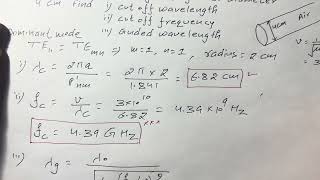 4 cm find i) cut off wavelength
ii) cut off frequency
iii) Guided wavelength
4cm
Air
Dominant mode
TE₁₁ = TE mn => m=1, n=1, radius = 2 cm
i) λc = 2πa / P'nm = 2π×2 / 1.841 = 6.82 cm
ii) fc = v / λc = 3×10¹⁰ / 6.82 = 4.39 ×10⁹ Hz
fc = 4.39 GHz ***
iii) λg = λ₀